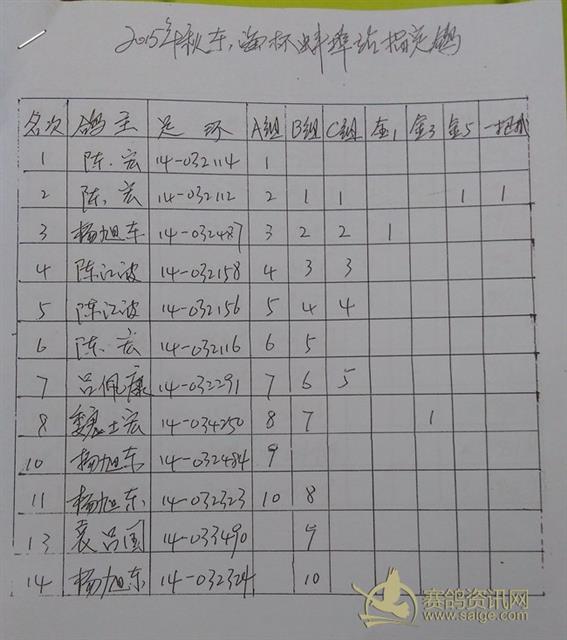 2015年秋东,蚌埠站指定鸽
名次 鸽主 足环 A组 B组 C组 金1 金3 金5
1 陈.宏 14-032114 1
2 陈.宏 14-032112 2 1 1 1 1
3 杨旭东 14-032487 3 2 2 1
4 陈江波 14-032158 4 3 3
5 陈江波 14-032156 5 4 4
6 陈.宏 14-032116 6 5
7 吕佩康 14-032291 7 6 5
8 魏士宏 14-034250 8 7 1
10 杨旭东 14-032484 9
11 杨旭东 14-032323 10 8
13 袁吕国 14-033490 9
14 杨旭东 14-032324 10
赛鸽资讯网
www.saige.com